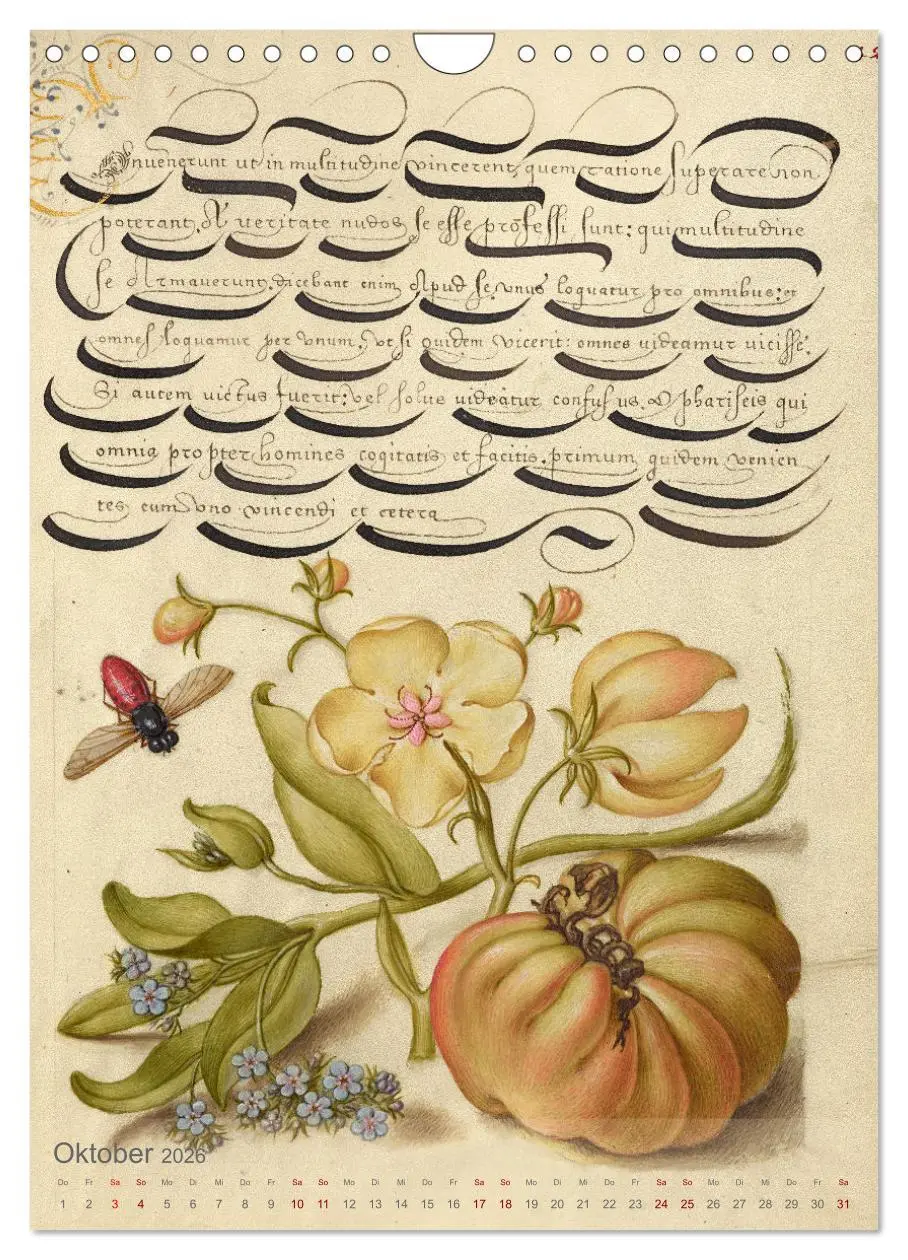 nuenerunt ut in multitudine vincerent, quem ratione superare non
poterant. A veritate nudos se esse professi sunt: qui multitudine
se Armauerunt. dicebant enim Apud se. vnus loquatur pro omnibus: et
omnes loquamur per vnum. vt si quidem vicerit: omnes uideamur uicisse.
Si autem uictus fuerit: vel solus uideatur confusus. O pharisei qui
omnia propter homines cogitatis et facitis. primum quidem venien
tes cum vno vincendi et cetera
Oktober 2026
Do Fr Sa So Mo Di Mi Do Fr Sa So Mo Di Mi Do Fr Sa So Mo Di Mi Do Fr Sa So Mo Di Mi Do Fr Sa
1 2 3 4 5 6 7 8 9 10 11 12 13 14 15 16 17 18 19 20 21 22 23 24 25 26 27 28 29 30 31